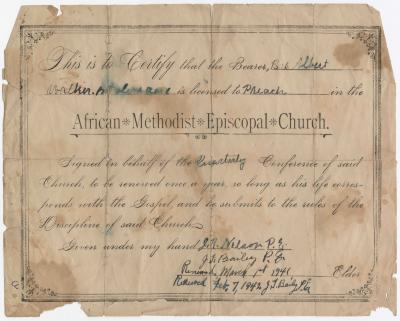 This is to Certify that the Bearer, Albert
is licensed to Preach in the
African Methodist Episcopal Church.
Signed on behalf of the Quarterly Conference of said
Church, to be renewed once a year, so long as his life corres-
ponds with the Gospel, and he submits to the rules of the
Discipline of said Church.
Given under my hand, J. R. Nelson P. E.
J. T. Baily P. E.
Renewed March 1st 1941 Elder
Renewed Feb, 7, 1942, J. T. Baily P.E.